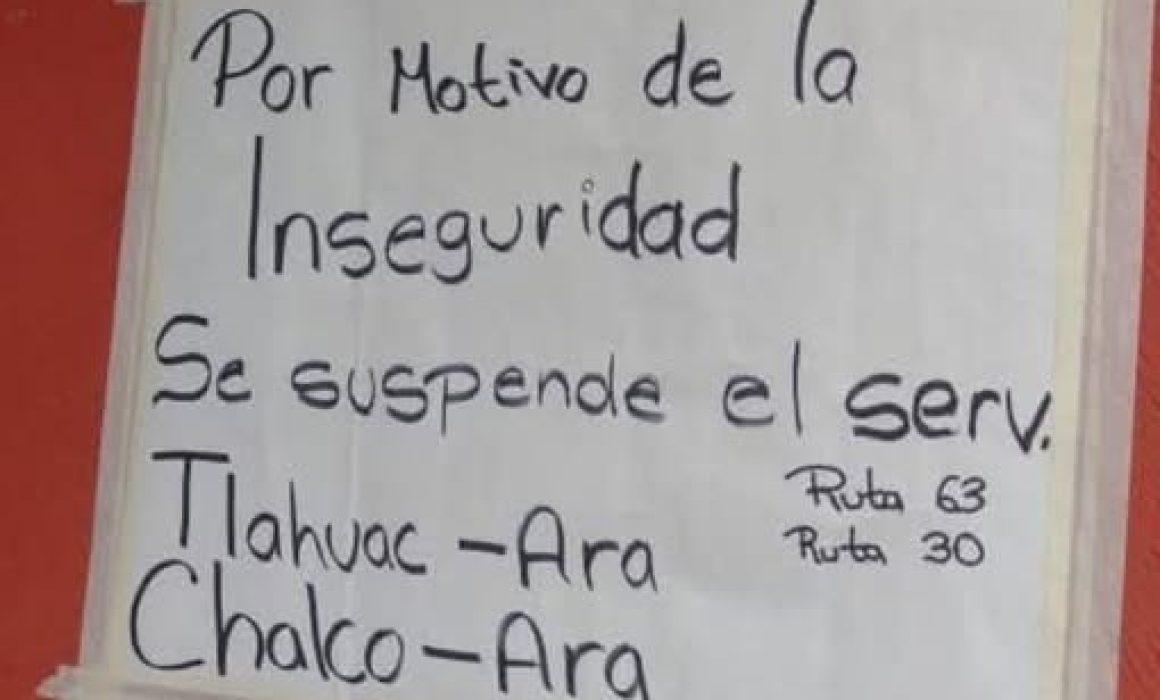 Por Motivo de la
Inseguridad
Se suspende el serv.
Ruta 63
Tlahuac - Ara
Ruta 30
Chalco - Ara